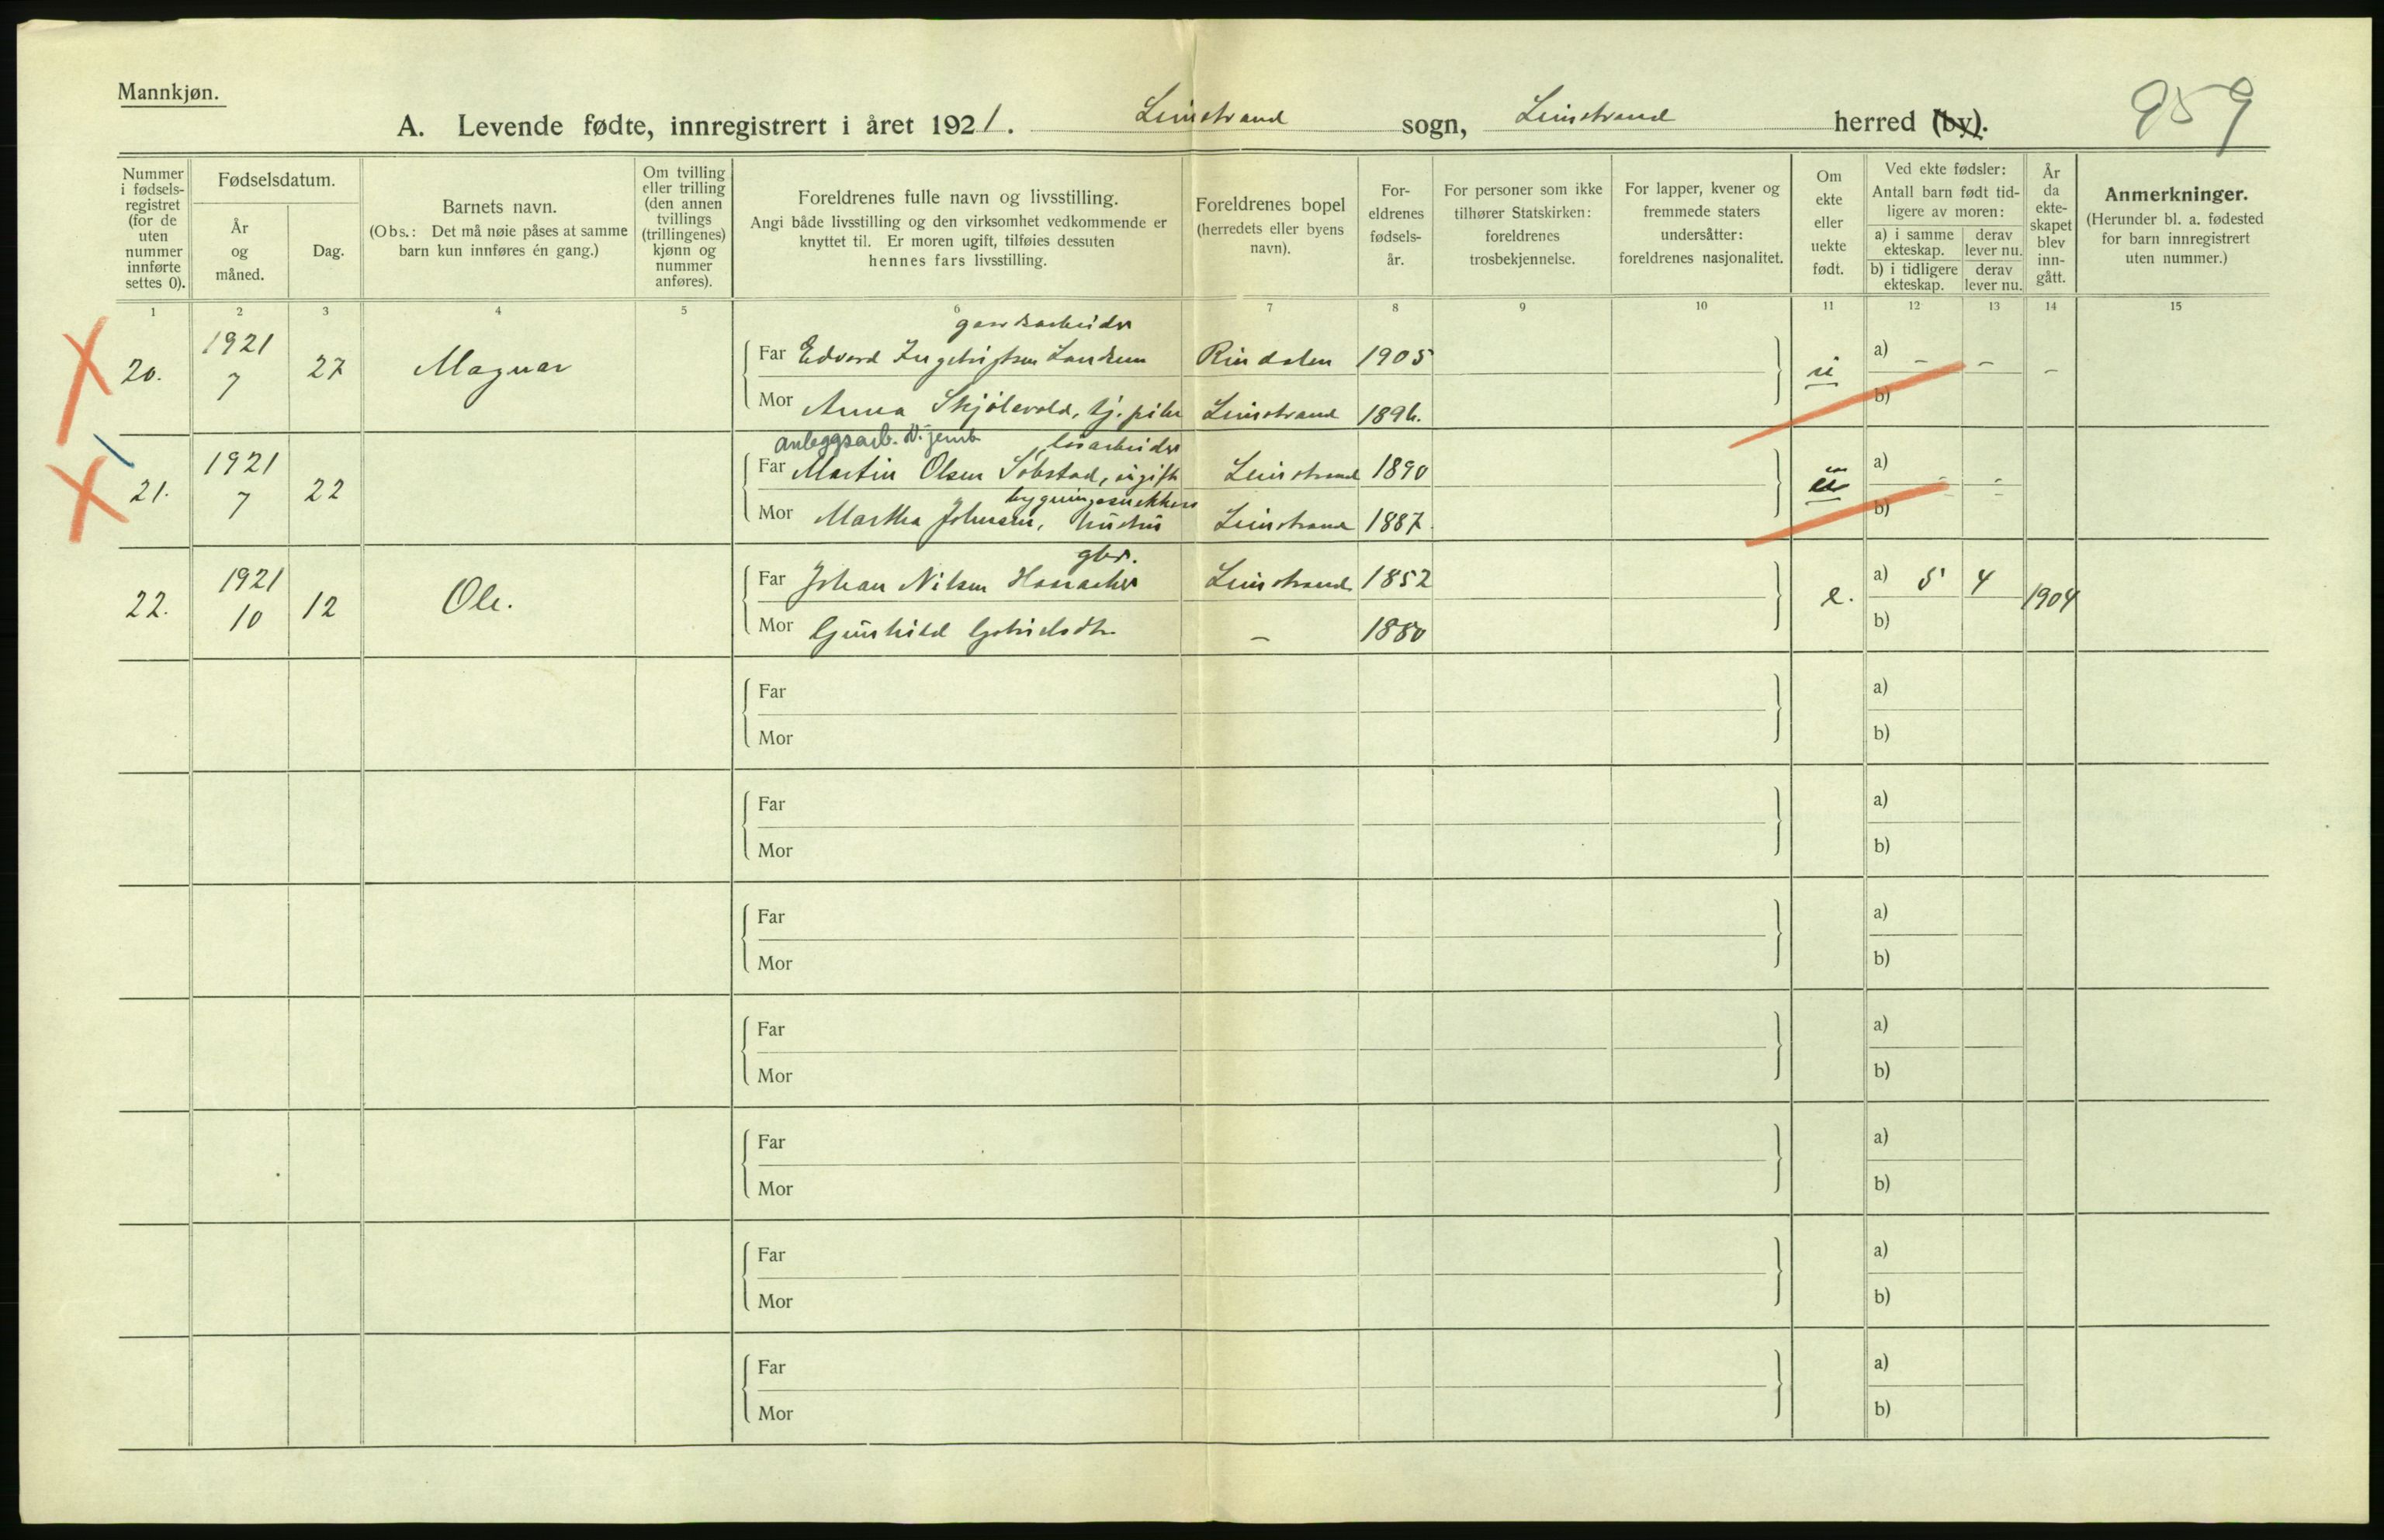 Mannkjøn.
A. Levende fødte, innregistrert i året 1921. Leinstrand sogn, Leinstrand herred (by).
959
Nummer i fødsels-registret (for de uten nummer innførte settes 0).
Fødselsdatum.
År og måned.
Dag.
Barnets navn.
(Obs.: Det må nøie påses at samme barn kun innføres én gang.)
Om tvilling eller trilling (den annen tvillings (trillingenes) kjønn og nummer anføres).
Foreldrenes fulle navn og livsstilling.
Angi både livsstilling og den virksomhet vedkommende er knyttet til. Er moren ugift, tilføies dessuten hennes fars livsstilling.
Foreldrenes bopel (herredets eller byens navn).
For-eldrenes fødsels-år.
For personer som ikke tilhører Statskirken: foreldrenes trosbekjennelse.
For lapper, kvener og fremmede staters undersåtter: foreldrenes nasjonalitet.
Om ekte eller uekte født.
Ved ekte fødsler:
Antall barn født tid-ligere av moren:
a) i samme ekteskap.
derav lever nu.
b) i tidligere ekteskap.
derav lever nu.
År da ekte-skapet blev inn-gått.
Anmerkninger.
(Herunder bl. a. fødested for barn innregistrert uten nummer.)
1 2 3 4 5 6 7 8 9 10 11 12 13 14 15
gardsarbeider
20. 1921 7 27 Magnar Far Edvard Ingebrigtsen Rindalen 1905 u a) - - -
Mor Anna Skjølsvold, tj. pike Leinstrand 1896. b)
anleggsarb. v. jernb. løsarbeider
21. 1921 7 22 Far Martin Olsen Søbstad, ugift Leinstrand 1890 u a) - -
bygningssnekker
Mor Martha Johnsen, hushj Leinstrand 1887. b)
gbr.
22. 1921 10 12 Ole. Far Johan Nilsen Leinstrand 1852 e. a) 5 4 1904
Mor Gunhild - 1880 b)
Far a)
Mor b)
Far a)
Mor b)
Far a)
Mor b)
Far a)
Mor b)
Far a)
Mor b)
Far a)
Mor b)
Far a)
Mor b)